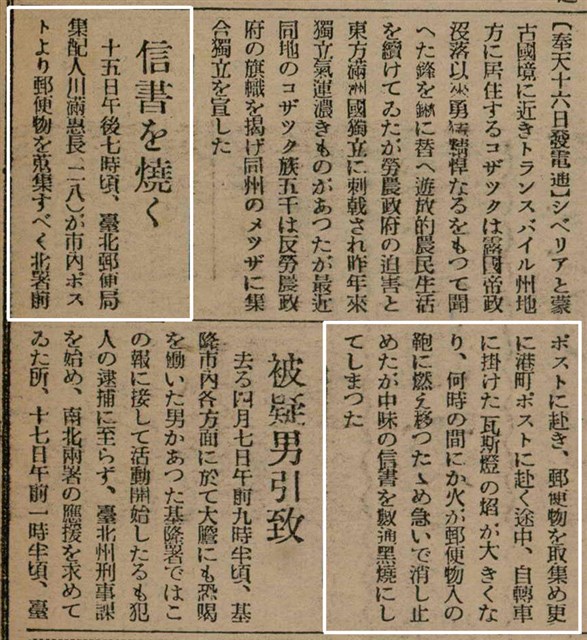 【奉天十六日發電通】シベリアと蒙
古國境に近きトランスバイル州地
方に居住するコザツクは露國帝政
沒落以來勇猛精悍なるをもつて聞
へた鋒を鍬に替へ遊放的農民生活
を續けてゐたが勞農政府の迫害と
東方滿洲國獨立に刺戟され昨年來
獨立氣運濃きものがあつたが最近
同地のコザツク族五千は反勞農政
府の旗幟を揭げ同州のメツザに集
合獨立を宣した
信書を燒く
十五日午後七時頃、臺北郵便局
集配人川滿惠長(二八)が市內ポス
トより郵便物を蒐集すべく北署前
ポストに赴き、郵便物を取集め更
に港町ポストに赴く途中、自轉車
に掛けた瓦斯燈の焰が大きくな
り、何時の間にか火が郵便物入の
鞄に燃え移つたゝめ急いで消し止
めたが中味の信書を數通黑燒にし
てしまつた
被疑男引致
去る四月七日午前九時半頃、基
隆市內各方面に於て大膽にも恐喝
を働いた男があつた基隆署ではこ
の報に接して活動開始したるも犯
人の逮捕に至らず、臺北州刑事課
を始め、南北兩署の應援を求めて
ゐた所、十七日午前一時半頃、臺